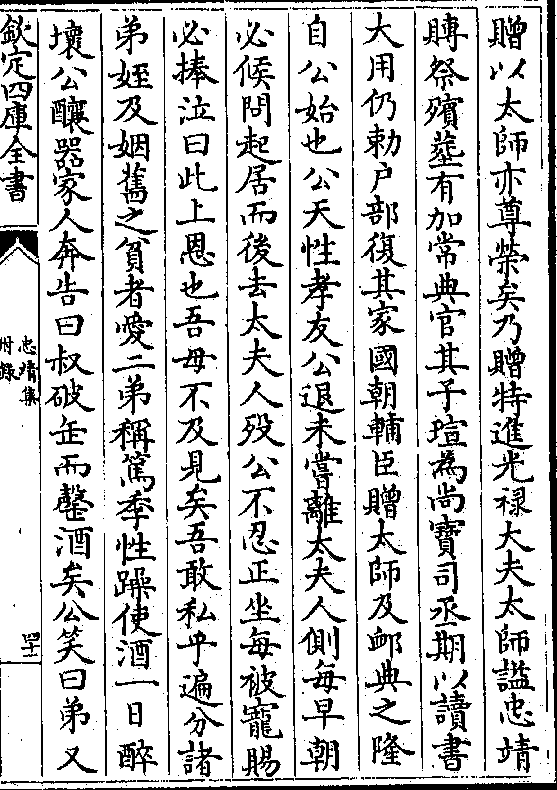 贈以太師亦尊榮矣乃贈特進光禄大夫太師諡忠靖
賻祭殯塟有加常典官其子瑄為尚寶司丞期以讀書
大用仍勅户部復其家國朝輔臣贈太師及䘏典之隆
自公始也公天性孝友公退未嘗離太夫人側每早朝
必候問起居而後去太夫人殁公不忍正坐每被寵賜
必捧泣曰此上恩也吾母不及見矣吾敢私乎遍分諸
弟姪及姻舊之貧者愛二弟稱篤季性躁使酒一日醉
壞公釀器家人奔告曰叔破缶而罄酒矣公笑曰弟又
欽定四庫全書
忠靖集
附錄